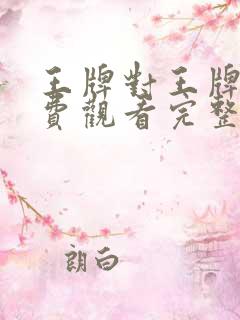 王牌對王牌
費觀看完整
朗白